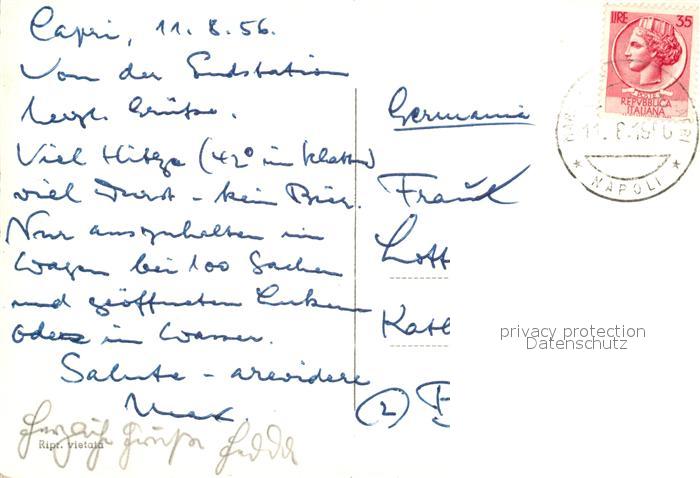 Capri, 11.8.56.
Von der Endstation
herzl. Grüße.
Viel Hitze (42° im Schatten)
viel Durst - kein Bier.
Nur auszuhalten im
Wagen bei 100 Sachen
und geöffneten Luken
oder im Wasser.
Salute - arevidere
Max.
Herzliche Grüße Hedda
Ripr. vietata
Germania
Lott
Kath
(2)
LIRE 35
POSTE
REPVBBLICA
ITALIANA
NAPOLI
privacy protection
Datenschutz